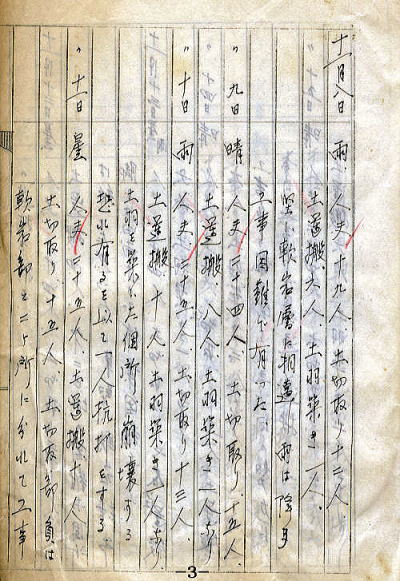 十一月八日 雨、人夫、十九人、土切取り十三人、
土運搬、六人、土羽築き一人、
堅い軟岩層に相違 雨は降り
工事困難で有った、
〃 九日 晴 人夫、二十四人、土切取り、十五人、
土運搬、八人、土羽築き一人なり
〃 十日 雨 人夫、二十五人、土切取り十三人、
土運搬、十人、土羽築き一人なり、
土羽を築いた個所崩壊する
恐れ有るを以て一人杭打をする
〃 十一日 曇 人夫、二十五人、土運搬十人、
土切取り、十五人、土切取部
軟岩部と二ヶ所に分れて工事
-3-